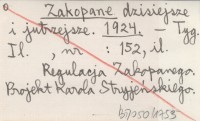 Zakopane dzisiejsze
i jutrzejsze. 1924. – Tyg.
Il. , nr : 152, il.
Regulacja Zakopanego.
Projekt Karola Stryjeńskiego.